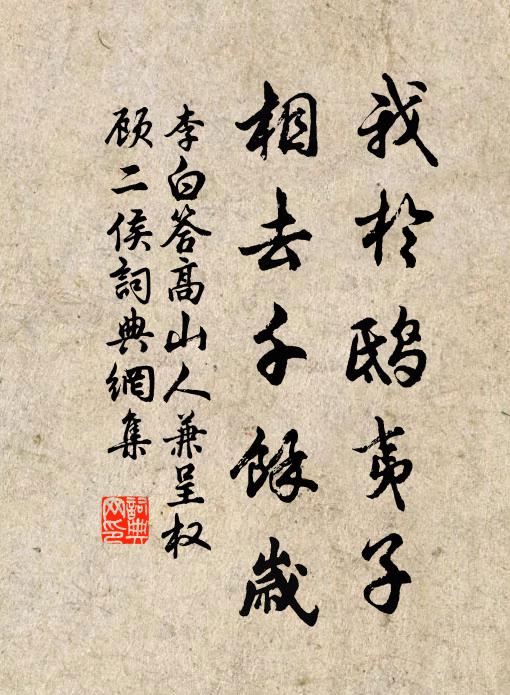 我於鴟夷子
相去千餘歲
李白答高山人兼呈权
顾二侯詞典網集
詞典
网印